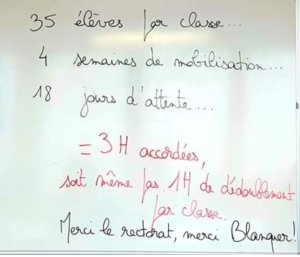 35 élèves par classe...
4 semaines de mobilisation...
18 jours d'attente...
= 3H accordées,
soit même pas 1H de dédoublement
par classe.
Merci le rectorat, merci Blanquer!